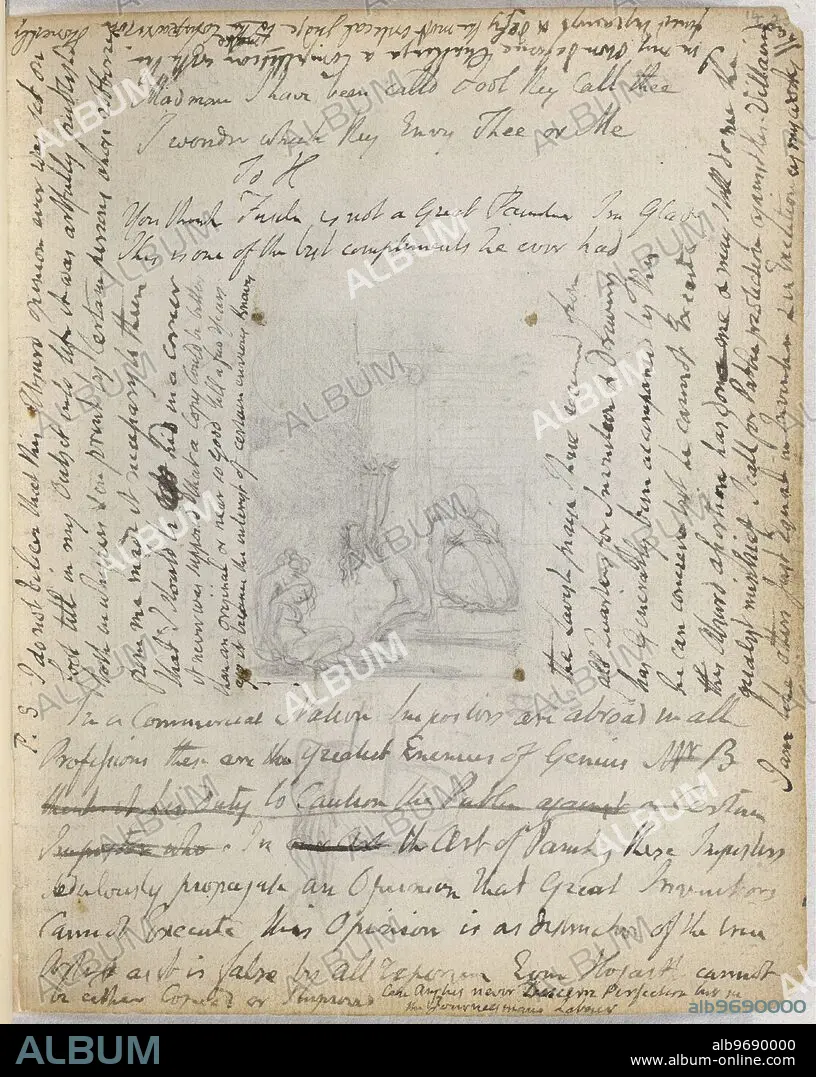 14
Madman I have been calld Fool they Call thee
I wonder which they Envy Thee or Me
To H
You think Fuseli is not a Great Painter Im Glad
This is one of the best compliments he ever had
P. S. I do not believe that this Absurd opinion ever was set on
foot till in my Outset into life it was artfully publishd
both in whispers & in print by Certain persons whose
from me made it necessary to them
that I should be hid in a corner
it never was supposed that a Copy Could be better
than an original or near so Good till a few Years
ago it became the interest of certain envious Knaves
the lavish praise I have received from
all Quarters for Invention & drawing
has Generally been accompanied by this
he can conceive but he cannot Execute
this Absurd assertion has done me & may still do me the
greatest mischief I call for Public protection against these Villains
I am like others Just Equal in Invention & in Execution as my works
In a Commercial Nation Impostors are abroad in all
Professions these are the greatest Enemies of Genius Mr B
thinks it his Duty to Caution the Public against a Certain
Impostor who In the Art of Painting these Impostors
sedulously propagate an Opinion that Great Inventors
Cannot Execute This Opinion is as destructive of the true
Artist as it is false by all Experience Even Hogarth cannot
be either Copied or Improved Can Anglus never Discern Perfection but in
the Journeymans Labour
ALBUM
alb9690000
ALBUM
alb9690000
www.album-online.com